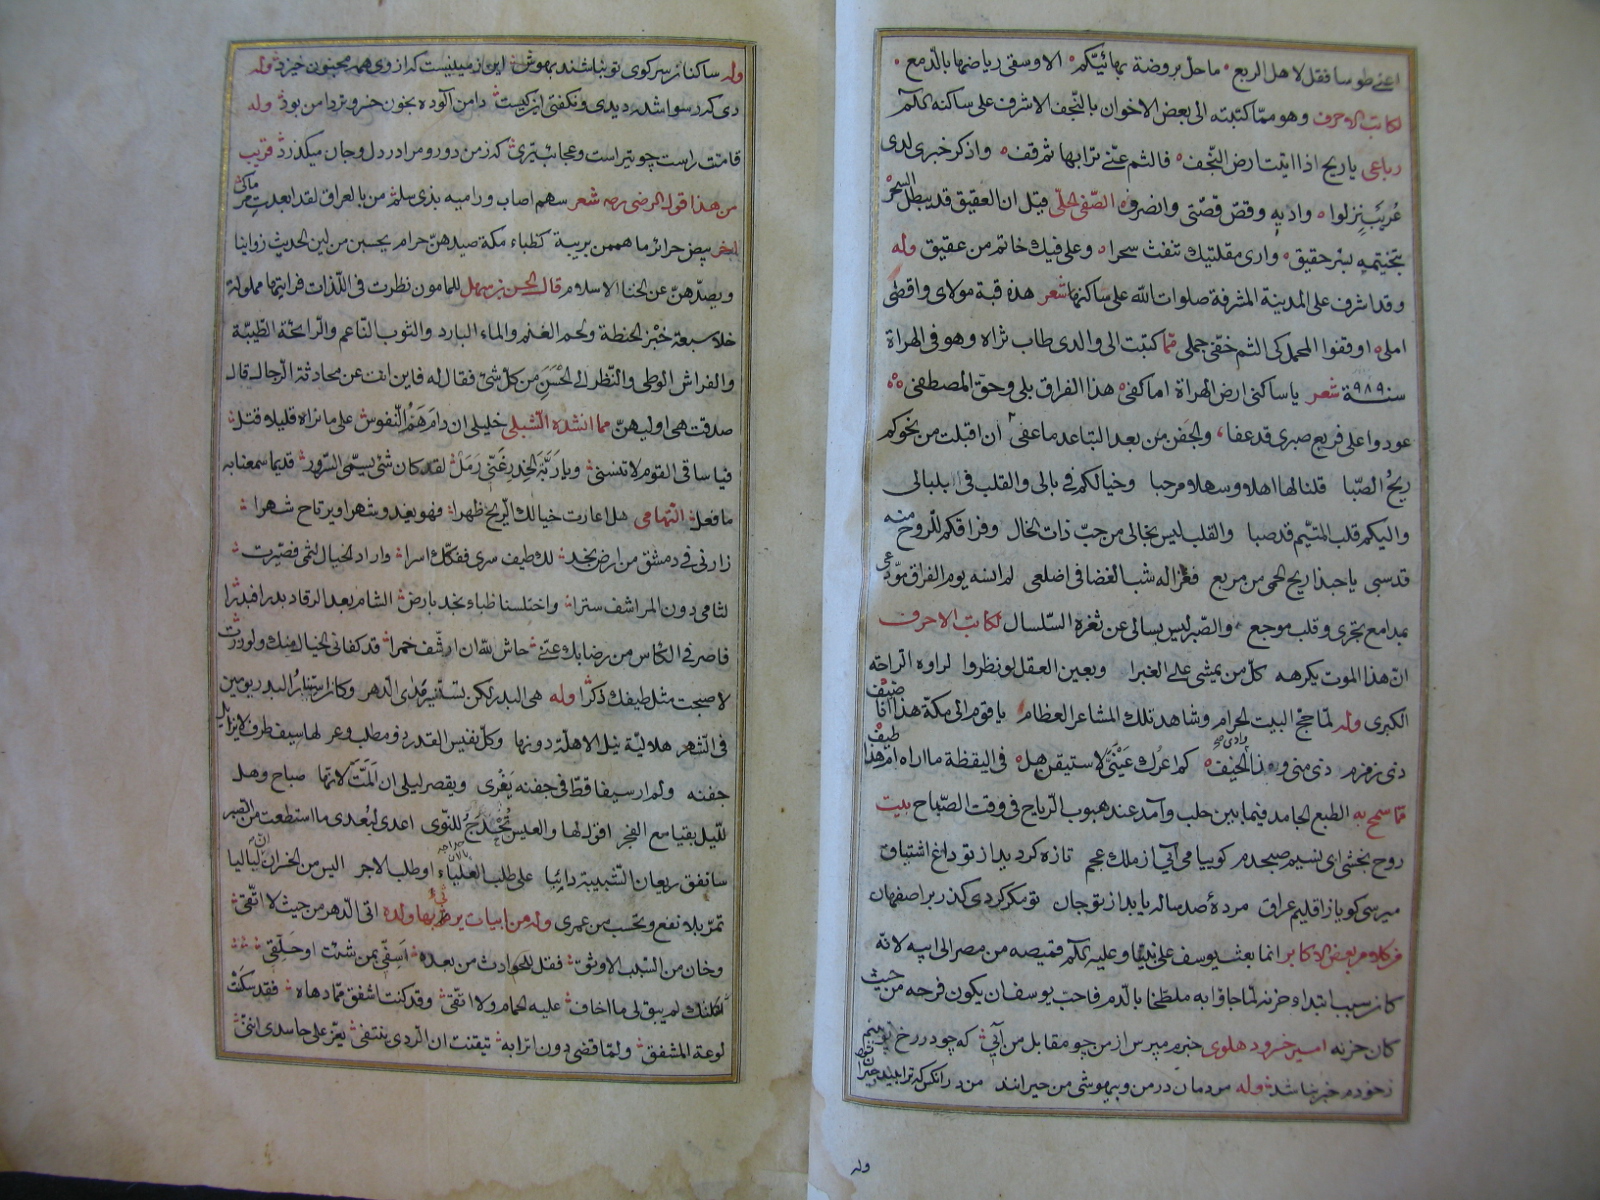 اعنی طوسا فقل لاهل الربع ما حل بروضة بهائیکم الا وسقی ریاضها بالدمع
لکاتب الاحرف وهو مما کتبته الی بعض الاخوان بالنجف الاشرف علی ساکنه
رباعی یا ریح اذا اتیت ارض النجف فالثم عنی ترابها ثم قف واذکر خبری لدی
عریب نزلوا وادیه وقص قصتی وانصرف الصفی الحلی قیل ان العقیق قد یبطل السحر
بتختمه لسر حقیق واری مقلتیک تنفث سحرا وعلی فیک خاتم من عقیق وله
وقد اشرف علی المدینة المشرفة صلوات الله علی ساکنها شعر هذه قبة مولای واقصی
املی اوقفوا المحمل کی الثم خفی جملی مما کتبت الی والدی طاب ثراه وهو فی الهراة
سنة ٩٨٩ شعر یا ساکنی ارض الهراة اما کفی هذا الفراق بلی وحق المصطفی
عودوا علی فربع صبری قد عفا والجفن من بعد التباعد ما غفی ان اقبلت من نحوکم
ریح الصبا قلنا لها اهلا وسهلا مرحبا وخیالکم فی بالی والقلب فی بلبالی
والیکم قلب المتیم قد صبا والقلب لیس بخالی من حب ذات الخال وفراقکم للروح منه
قد سبی یا حبذا ریح الحمی من مربع فغزاله شب الغضا فی اضلعی لم انسه یوم الفراق مودعی
بمدامع تجری وقلب موجع والصبر لیس بسالی عن ثغره السلسال لکاتب الاحرف
ان هذا الموت یکرهه کل من یمشی علی الغبرا وبعین العقل لو نظروا لراوه الراحة
الکبری وله لما حج البیت الحرام وشاهد تلک المشاعر العظام یا قوم الی مکة هذا انا ضیف
ذی زمزم ذی منی وذا الخیف کم اعرک عینی لاستیقن هل فی الیقظة ما اراه ام هذا طیف
مما سمح به الطبع الجامد فیما بین حلب وآمد عند هبوب الریاح فی وقت الصباح بیت
روح بخشی ای نسیم صبحدم کوییا می آیی از ملک عجم تازه کردید از تو داغ اشتیاق
میرسی کویا ز اقلیم عراق مردهٔ صد ساله یابد از تو جان تو مکر کردی کذر بر اصفهان
من کلام بعض الاکابر انما بعث یوسف علی نبینا وعلیه قمیصه من مصر الی ابیه لانه
کان سبب ابتداء حزنه لما جاؤا به ملطخا بالدم فاحب یوسف ان یکون فرحه من حیث
کان حزنه امیر خسرو دهلوی خبرم مپرس از من چو مقابل من آیی که چو در رخ تو بینم
ز خودم خبر نباشد وله مردمان در من و بیهوشی من حیرانند من در انکس که ترا بیند
وله
وله ساکنان سر کوی تو نباشند بهوش این زمینیست که از وی همه مجنون خیزد وله
دی که رسوا شده دیدی و نکفتی این کیست دامن آلوده بخون خسرو تردامن بود وله
قامت راست چو تیر است و عجایب تیری که ز من دور و مرا در دل و جان میکذرد قریب
من هذا قول الرضی ره شعر سهم اصاب ورامیه بذی سلم من بالعراق لقد ابعدت مرماک
لآخر بیض حرائر ما هممن بریبة کظباء مکة صیدهن حرام یحسبن من لین الحدیث زوانیا
ویصدهن عن الخنا الاسلام قال الحسن بن سهل للمامون نظرت فی اللذات فرایتها مملولة
خلا سبعة خبز الحنطة ولحم الغنم والماء البارد والثوب الناعم والرائحة الطیبة
والفراش الوطی والنظر الی الحسن من کل شی فقال له فاین انت عن محادثة الرجال قال
صدقت هی اولهن مما انشده الشبلی خلیلی ان دام هم النفوس علی ما تراه قلیلا قتل
فیا ساقی القوم لا تنسنی ویا ربة الخدر غنی رمل لقد کان شی یسمی السرور قدیما سمعنا به
ما فعل التهامی هل اعارت خیالک الریح ظهرا فهو یغدو شهرا ویرتاح شهرا
زارنی فی دمشق من ارض نجد لک طیف سری ففکک اسرا واراد الخیال لثمی فصیرت
لثامی دون المراشف سترا واختلسنا ظباء نجد بارض الشام بعد الرقاد بدرا فبدرا
فاصرفی الکاس من رضابک عنی حاش لله ان ارشف خمرا قد کفانی الخیال منک ولو زرت
لاصبحت مثل طیفک ذکرا وله هی البدر لکن تستسر مدی الدهر وکان استسار البدر یومین
فی الشهر هلالیة نیل الاهلة دونها وکل نفیس القدر ذو مطلب وعر لها سیف طرف لا یزایل
جفنه ولم ار سیفا قط فی جفنه یغری ویقصر لیلی ان المت لانها صباح وهل
للیل بقیا مع الفجر اقول لها والعیس تحدج للنوی اعدی لبعدی ما استطعت من الصبر
سانفق ریعان الشبیبة دائبا علی طلب العلیاء او طلب الاجر الیس من الخسران ان لیالیا
تمر بلا نفع وتحسب من عمری وله من ابیات یرثی بها ولده اتی الدهر من حیث لا اتقی
وخان من السبب الاوثق فقل للحوادث من بعده اسفی بمن شئت او حلقی
امنتک لم یبق لی ما اخاف علیه الحمام ولا اتقی وقد کنت اشفق مما دهاه فقد سکنت
لوعة المشفق ولما قضی دون اترابه تیقنت ان الردی ینتقی یعز علی حاسدی اننی